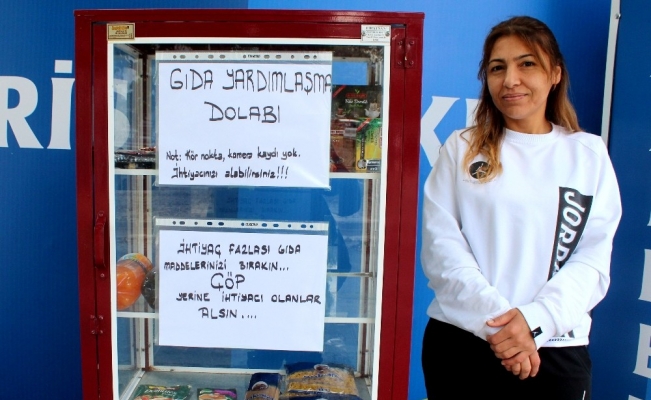 GIDA YARDIMLAŞMA
DOLABI
Not: Kör nokta, kamera kaydı yok.
İhtiyacınızı alabilirsiniz!!!
İHTİYAÇ FAZLASI GIDA
MADDELERİNİZİ BIRAKIN...
ÇÖP
YERİNE İHTİYACI OLANLAR
ALSIN....
RİS
JORDAN